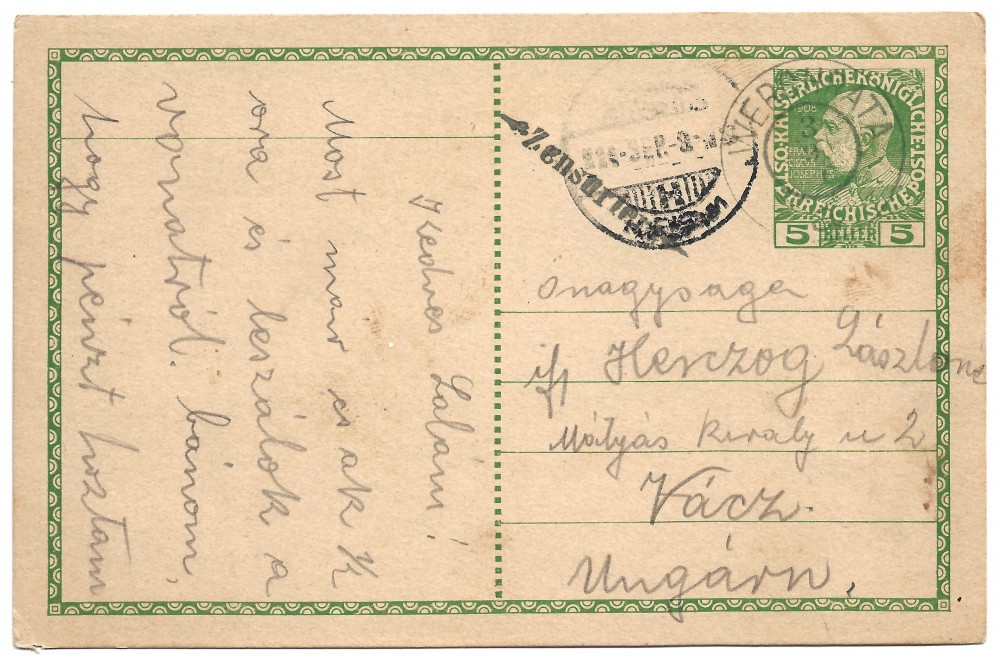 Kedves Lalám!
Most már csak K
óra és leszálok a
vonatról. bánom,
hogy pénzt hoztam
Zensuriert
WIEN
KAISERLICHEKÖNIGLICHE
ÖSTERREICHISCHE POST
1908
FRAN
CISCVS
JOSEPHVS
5 HELLER 5
Önagysága
Herczog Lászlóné
Mátyás király u 2
Vácz.
Ungárn,